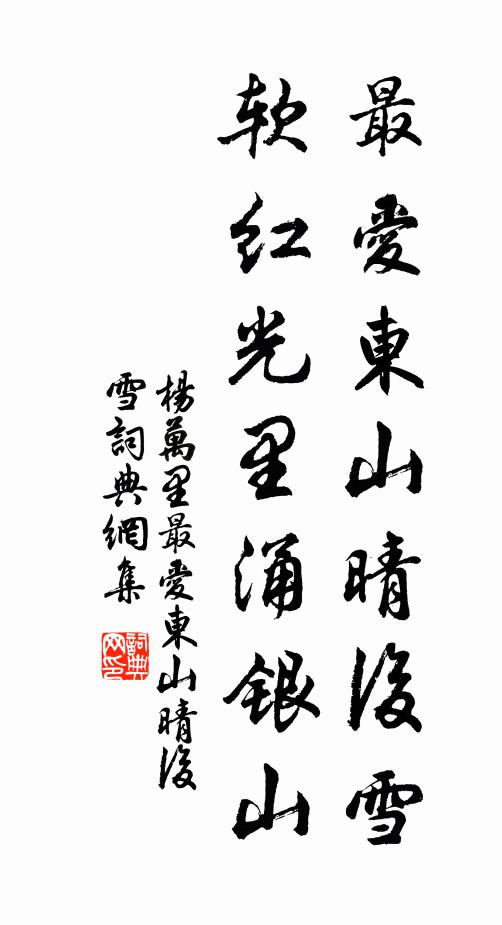 最愛東山晴後雪
软红光里涌银山
楊萬里最愛東山晴後
雪詞典網集
詞典
网印